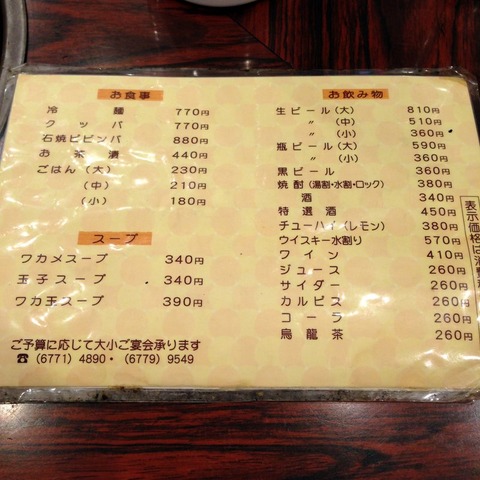 お食事
冷麺 770円
クッパ 770円
石焼ビビンバ 880円
お茶漬 440円
ごはん(大) 230円
(中) 210円
(小) 180円
スープ
ワカメスープ 340円
玉子スープ 340円
ワカ玉スープ 390円
ご予算に応じて大小ご宴会承ります
☎(6771)4890・(6779)9549
お飲み物
生ビール(大) 810円
〃 (中) 510円
〃 (小) 360円
瓶ビール(大) 590円
〃 (小) 360円
黒ビール 360円
焼酎(湯割・水割・ロック) 380円
酒 340円
特選酒 450円
チューハイ(レモン) 380円
ウイスキー水割り 570円
ワイン 410円
ジュース 260円
サイダー 260円
カルピス 260円
コーラ 260円
烏龍茶 260円
表示価格は消費